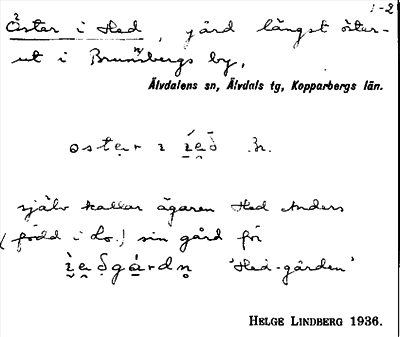 1-2
Öster i Hed, gård längst öster-
ut i Brunnsbergs by,
Älvdalens sn, Älvdals tg, Kopparbergs län.
själv kallar ägaren Hed Anders
(född i Lo.!) sin gård för
'Hed-gården'
HELGE LINDBERG 1936.